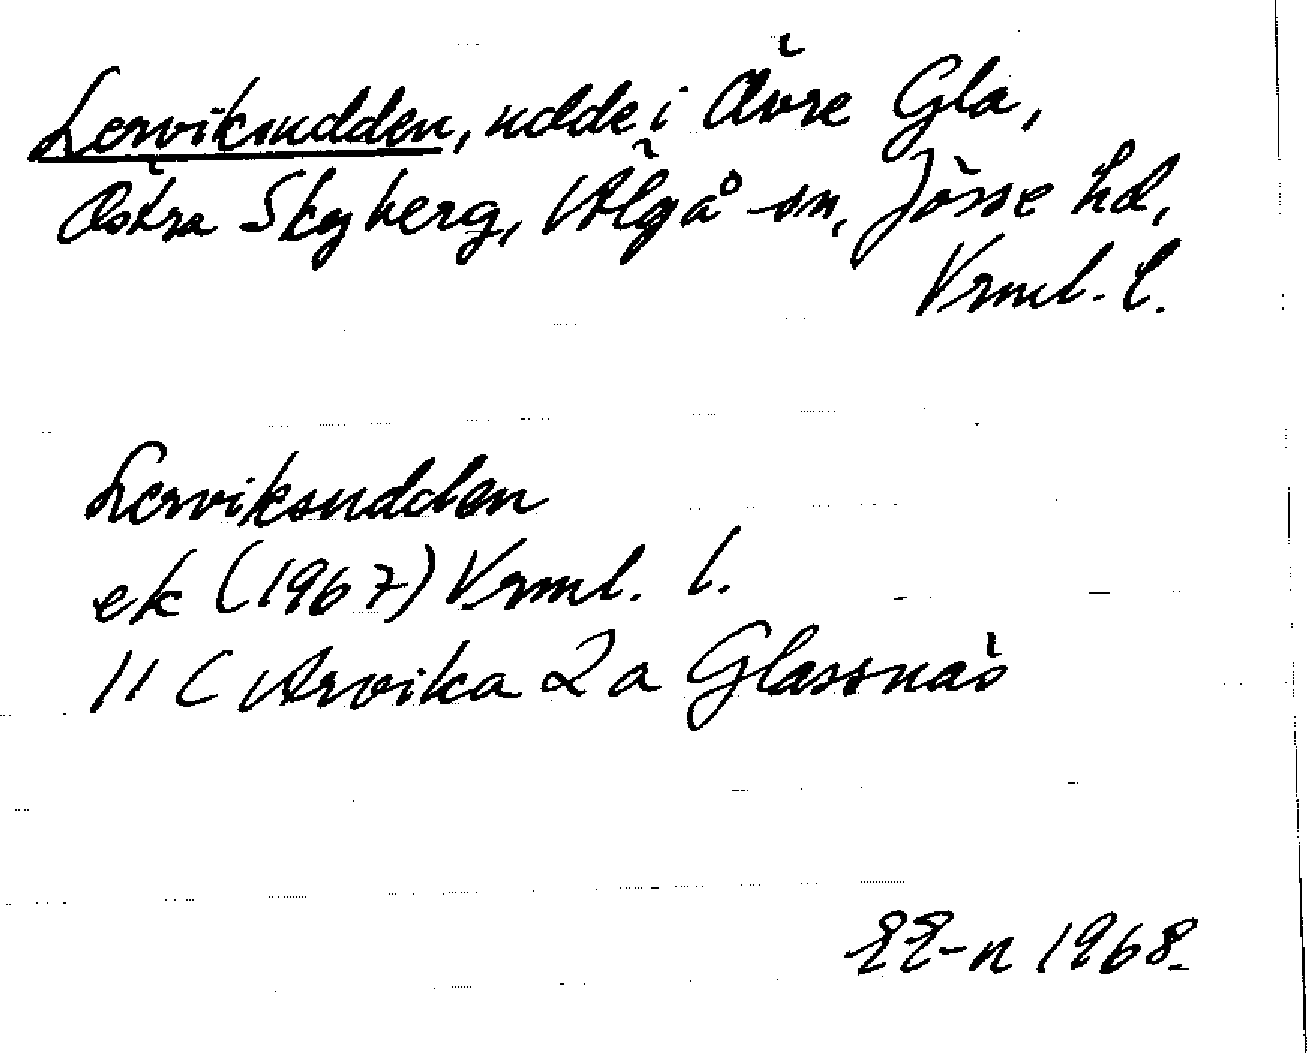 Lerviksudden, udde i Övre Gla,
Östra Skyberg, Älgå sn, Jösse hd,
Vrml. l.
Lerviksudden
ek (1967) Vrml. l.
11 C Arvika 2a Glassnäs
EE-n 1968.